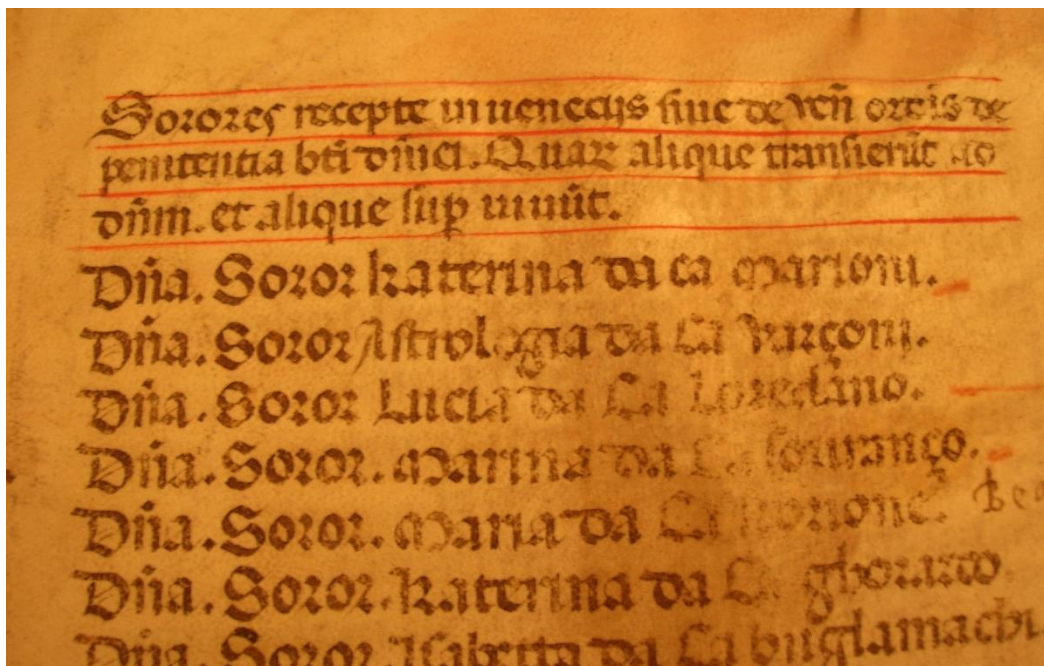 Sorores recepte in ueneciis siue de veñ ordis de
penitentia bti dñici. Quaꝝ alique transierūt ad
dñm. et alique suꝑ uiuūt.
Dña. Soror katerina da ca marioni.
Dña. Soror Astrologia da Ca Varçoni.
Dña. Soror Lucia da Ca Loredano.
Dña. Soror. marina da Ca souranço.
Dña. Soror. maria da Ca
Dña. Soror. katerina da Ca ghorardo.
Dña. Soror. Isabetta da Ca buglamachi.